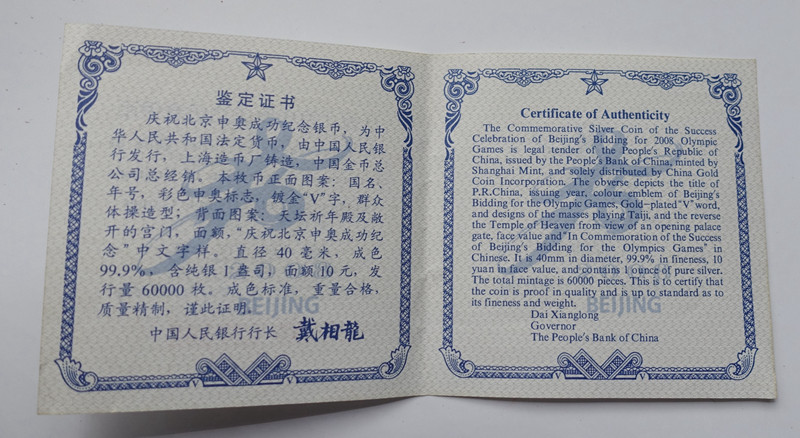 鉴定证书
庆祝北京申奥成功纪念银币，为中
华人民共和国法定货币，由中国人民银
行发行，上海造币厂铸造，中国金币总
公司总经销。本枚币正面图案：国名、
年号，彩色申奥标志，镀金“V”字，群众
体操造型；背面图案：天坛祈年殿及敞
开的宫门，面额，“庆祝北京申奥成功纪
念”中文字样。直径40毫米，成色
99.9%，含纯银1盎司，面额10元，发
行量60000枚。成色标准，重量合格，
质量精制，谨此证明。
BEIJING
中国人民银行行长 戴相龍
Certificate of Authenticity
The Commemorative Silver Coin of the Success
Celebration of Beijing's Bidding for 2008 Olympic
Games is legal tender of the People's Republic of
China, issued by the People's Bank of China, minted by
Shanghai Mint, and solely distributed by China Gold
Coin Incorporation. The obverse depicts the title of
P.R.China, issuing year, colour emblem of Beijing's
Bidding for the Olympic Games, Gold-plated "V" word,
and designs of the masses playing Taiji, and the reverse
the Temple of Heaven from view of an opening palace
gate, face value and "In Commemoration of the Success
of Beijing's Bidding for the Olympics Games" in
Chinese. It is 40mm in diameter, 99.9% in fineness, 10
yuan in face value, and contains 1 ounce of pure silver.
The total mintage is 60000 pieces. This is to certify that
the coin is proof in quality and is up to standard as to
its fineness and weight.
BEIJING
Dai Xianglong
Governor
The People's Bank of China